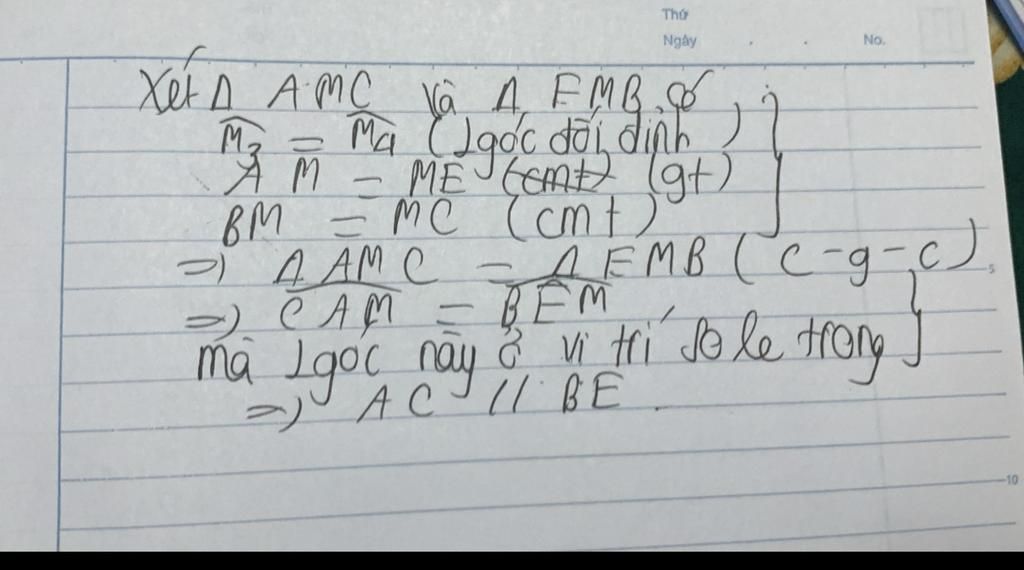 Thứ
Ngày . . No.
Xét Δ AMC và Δ EMB có
M3 = M4 (2 góc đối đỉnh)
AM = ME (cmt) (gt)
BM = MC (cmt)
=> Δ AMC = Δ EMB (c-g-c)
5
=> CAM = BEM
mà 2 góc này ở vị trí so le trong
=> AC // BE.
10